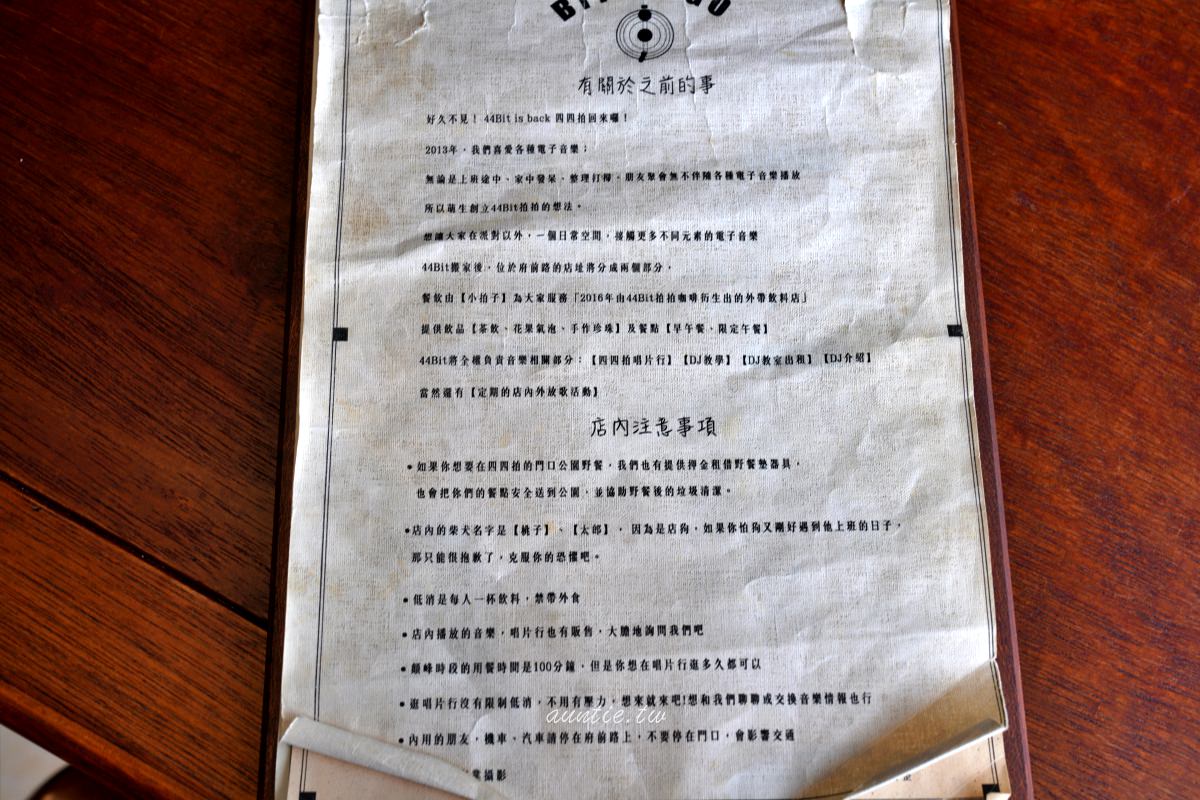 有關於之前的事
好久不見！ 44Bit is back 四四拍回來囉！
2013年，我們喜愛各種電子音樂；
無論是上班途中、家中發呆、整理打掃、朋友聚會無不伴隨各種電子音樂播放
所以萌生創立44Bit拍拍的想法。
想讓大家在派對以外，一個日常空間，接觸更多不同元素的電子音樂
44Bit搬家後，位於府前路的店址將分成兩個部分，
餐飲由【小拍子】為大家服務「2016年由44Bit拍拍咖啡衍生出的外帶飲料店」
提供飲品【茶飲、花果氣泡、手作珍珠】及餐點【早午餐、限定午餐】
44Bit將全權負責音樂相關部分：【四四拍唱片行】【DJ教學】【DJ教室出租】【DJ介紹】
當然還有【定期的店內外放歌活動】
店內注意事項
•如果你想要在四四拍的門口公園野餐，我們也有提供押金租借野餐墊器具，
也會把你們的餐點安全送到公園，並協助野餐後的垃圾清潔。
•店內的柴犬名字是【桃子】、【太郎】， 因為是店狗，如果你怕狗又剛好遇到他上班的日子，
那只能很抱歉了，克服你的恐懼吧。
•低消是每人一杯飲料，禁帶外食
•店內播放的音樂，唱片行也有販售，大膽地詢問我們吧
•顛峰時段的用餐時間是100分鐘，但是你想在唱片行逛多久都可以
•逛唱片行沒有限制低消，不用有壓力，想來就來吧!想和我們聊聊或交換音樂情報也行
auntie.tw
•內用的朋友，機車、汽車請停在府前路上，不要停在門口，會影響交通
業攝影